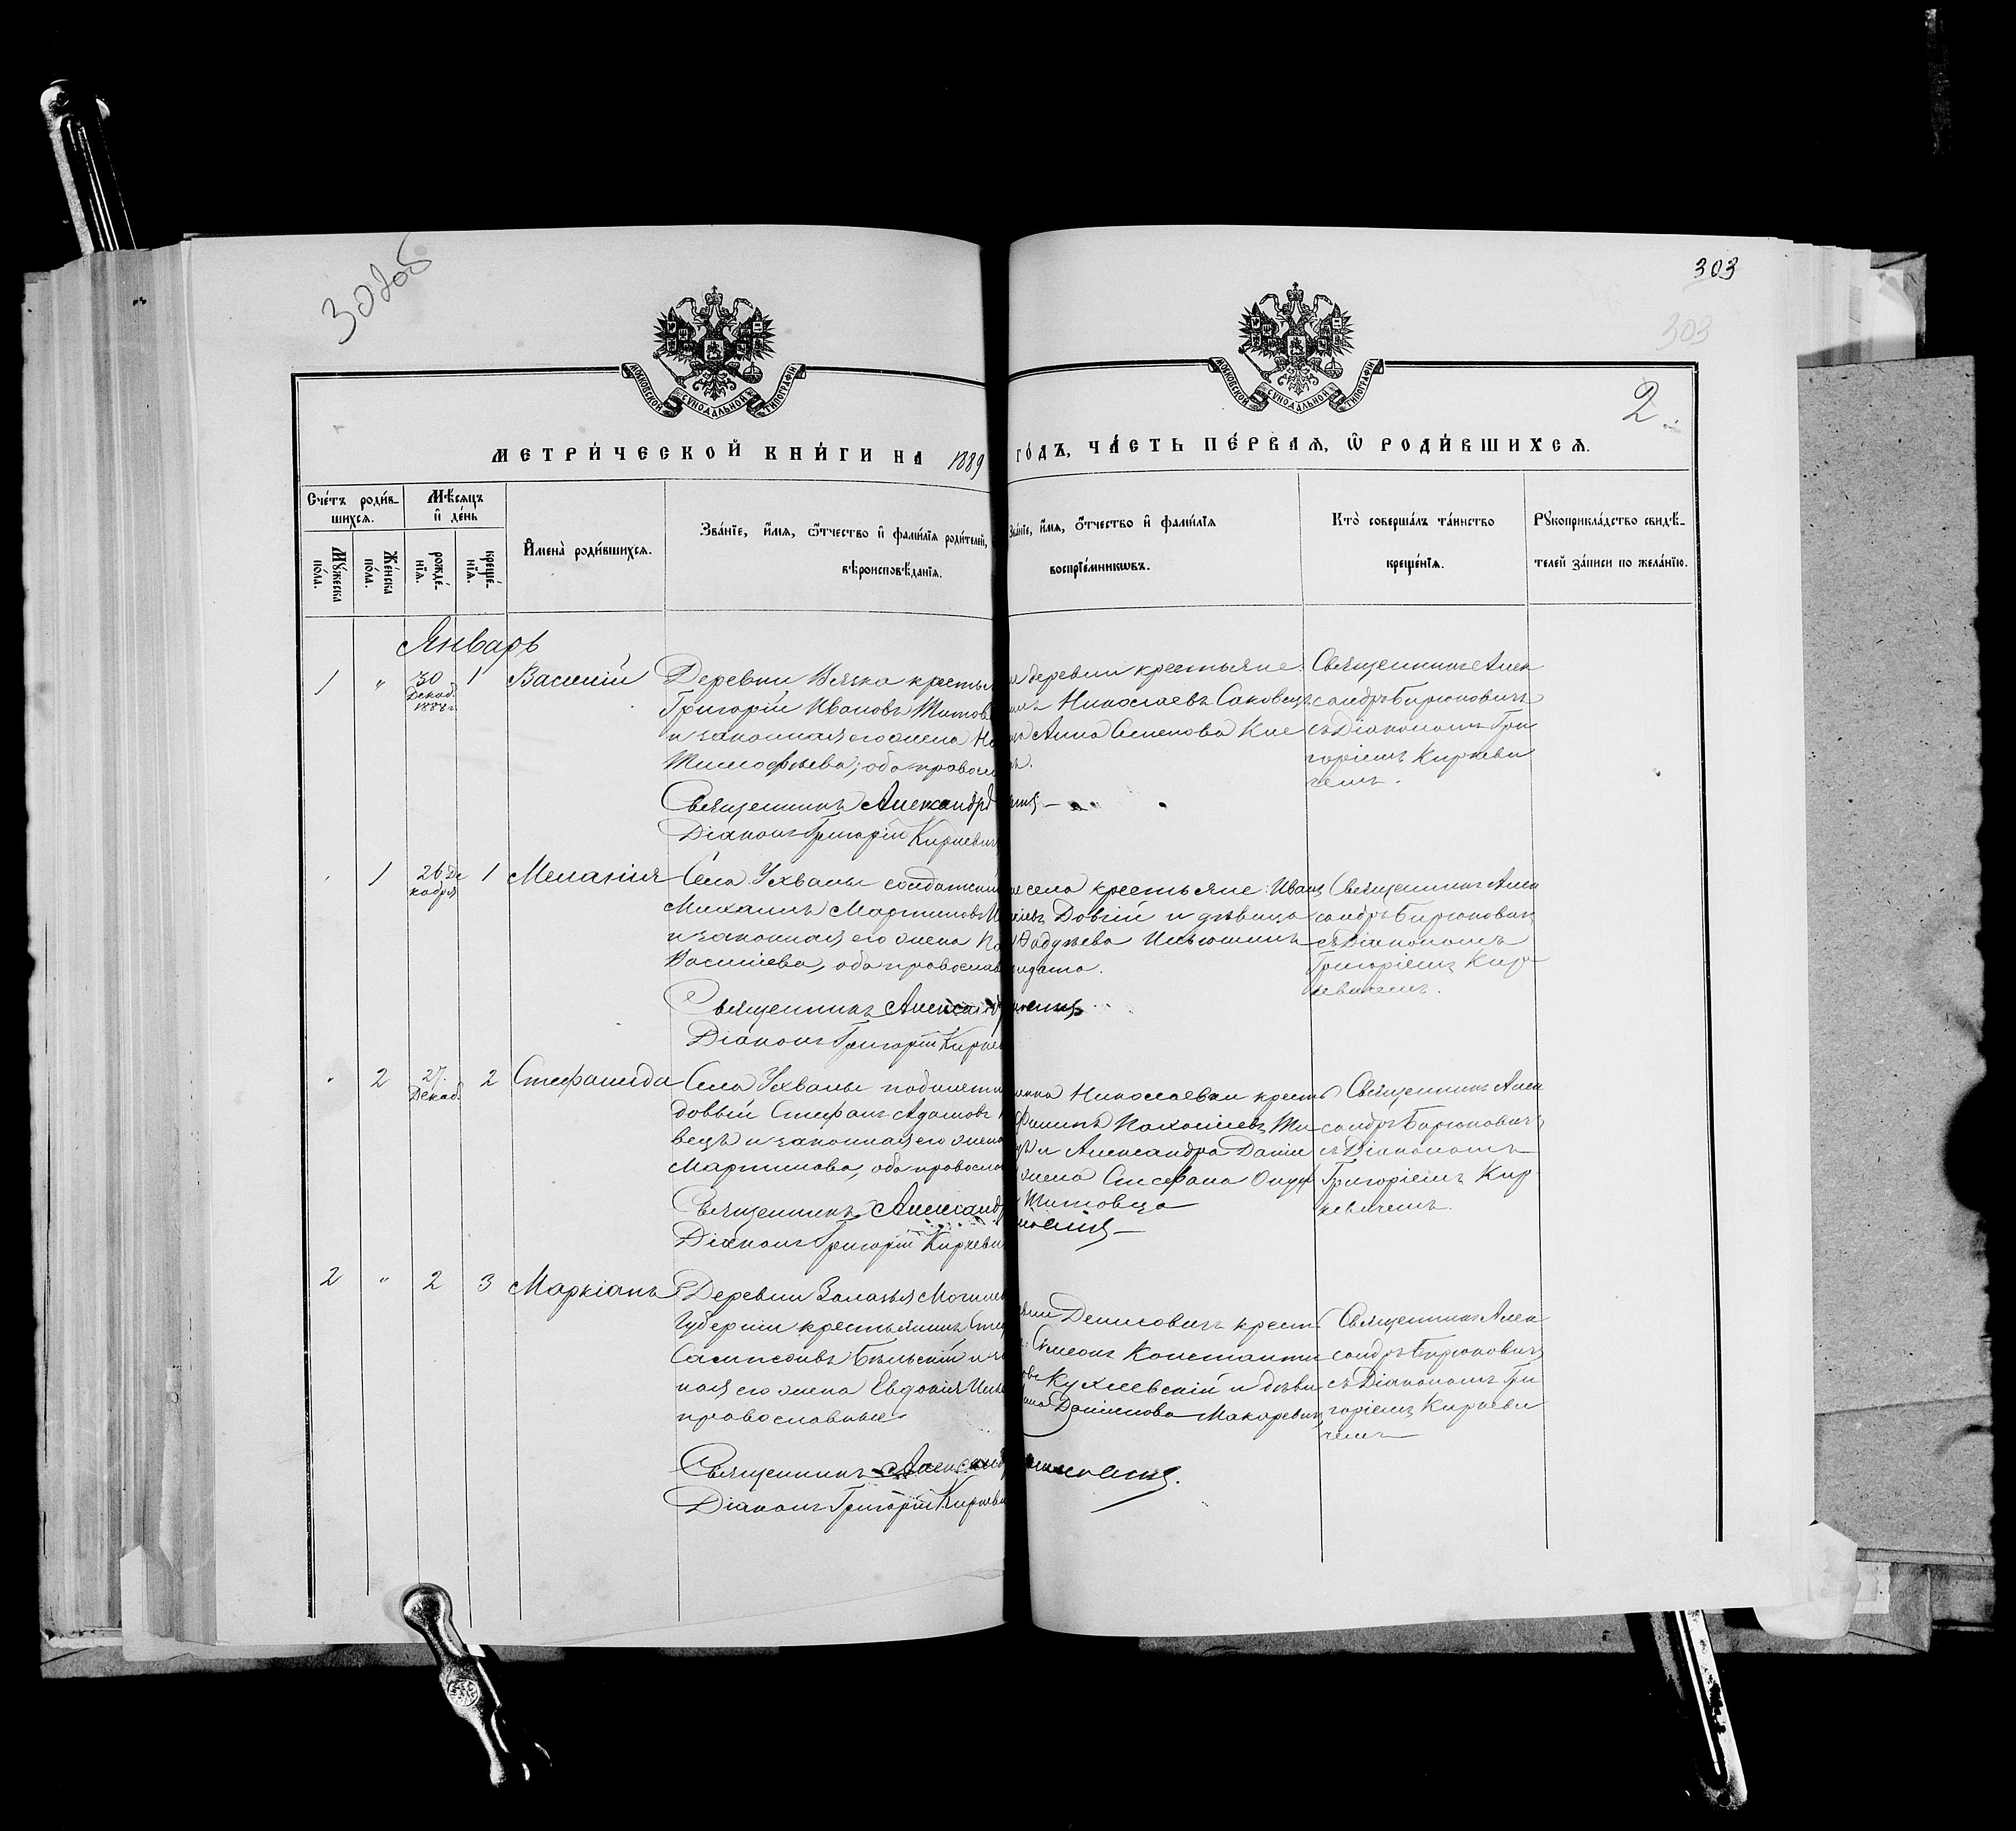 302об
303
303
2.
МОСКОВСКОЙ СУНОДАЛЬНОЙ ТИПОГРАФІИ
МОСКОВСКОЙ СУНОДАЛЬНОЙ ТИПОГРАФІИ
МЕТРИ́ЧЕСКОЙ КНИ́ГИ НА 1889 ГО́ДЪ, ЧА́СТЬ ПЕ́РВАЯ, Ѽ РОДИ́ВШИХСЯ.
Сче́тъ роди́в-
шихся.
Мѣ́сяцъ
и҆ де́нь
Му́жеска
по́ла.
Же́нска
по́ла.
рожде́-
нїя.
креще́-
нїя.
И҆мена̀ роди́вшихся.
Зва́нїе, и҆́мя, ѻ҆́тчество и҆ фамі́лїя роди́телей,
вѣроисповѣ́данїя.
Зва́нїе, и҆́мя, ѻ҆́тчество и҆ фамі́лїя
воспрїе́мникѡвъ.
Кто̀ соверша́лъ та́инство
креще́нїя.
Рукоприкла́дство свидѣ́-
телей за́писи по жела́нїю.
Январь
1 " 30 1 Василій
Декаб.
1888 г.
Деревни крестья
Григорій Ивановъ Титов
и законная его жена
Тимофѣева; оба правосл
Священникъ Александръ
Діаконъ Григорій Киркевич
деревни крестьяне
Николаевъ Саковецъ
Анна Семенова
Священникъ Алек
сандръ Бирюковичъ
съ Діакономъ Гри
горіемъ Киркеви
чемъ.
1 26 Де 1 Меланія
кабря
Села Ухвалы солдатскій
Михаилъ Мартиновъ
и законная его жена
Василіева, оба православ
Священникъ Александр
Діаконъ Григорій Кирке
села крестьяне: Иванъ
Довгій и дѣвица
Фадѣева
Священникъ Алек
сандръ Бирюковичъ
съ Діакономъ
Григоріемъ Кир
кевичемъ.
2 27. 2 Стефанида
Декаб.
Села Ухвалы
Стефанъ Адамовъ
вецъ и законная его жена
Мартинова, оба правосла
Священникъ Александр
Діаконъ Григорій Киркеви
Николаевки крест
Ти
и Александра Даніи
жена Стефана Онуф
Титовца
Священникъ Алек
сандръ Бирюковичъ
съ Діакономъ
Григоріемъ Кир
кевичемъ.
2 " 2 3 Маркіанъ
Деревни Могилев
Губерніи крестьянинъ
Сампсоновъ Бѣльскій и
ная его жена Евдокія
православные.
Священникъ Александр
Діаконъ Григорій Киркеви
Денисовичъ крест
Симеонъ Константи
и дѣви
Даніилова Макаревичъ
Священникъ Алек
сандръ Бирюковичъ
съ Діакономъ Гри
горіемъ Киркеви
чемъ